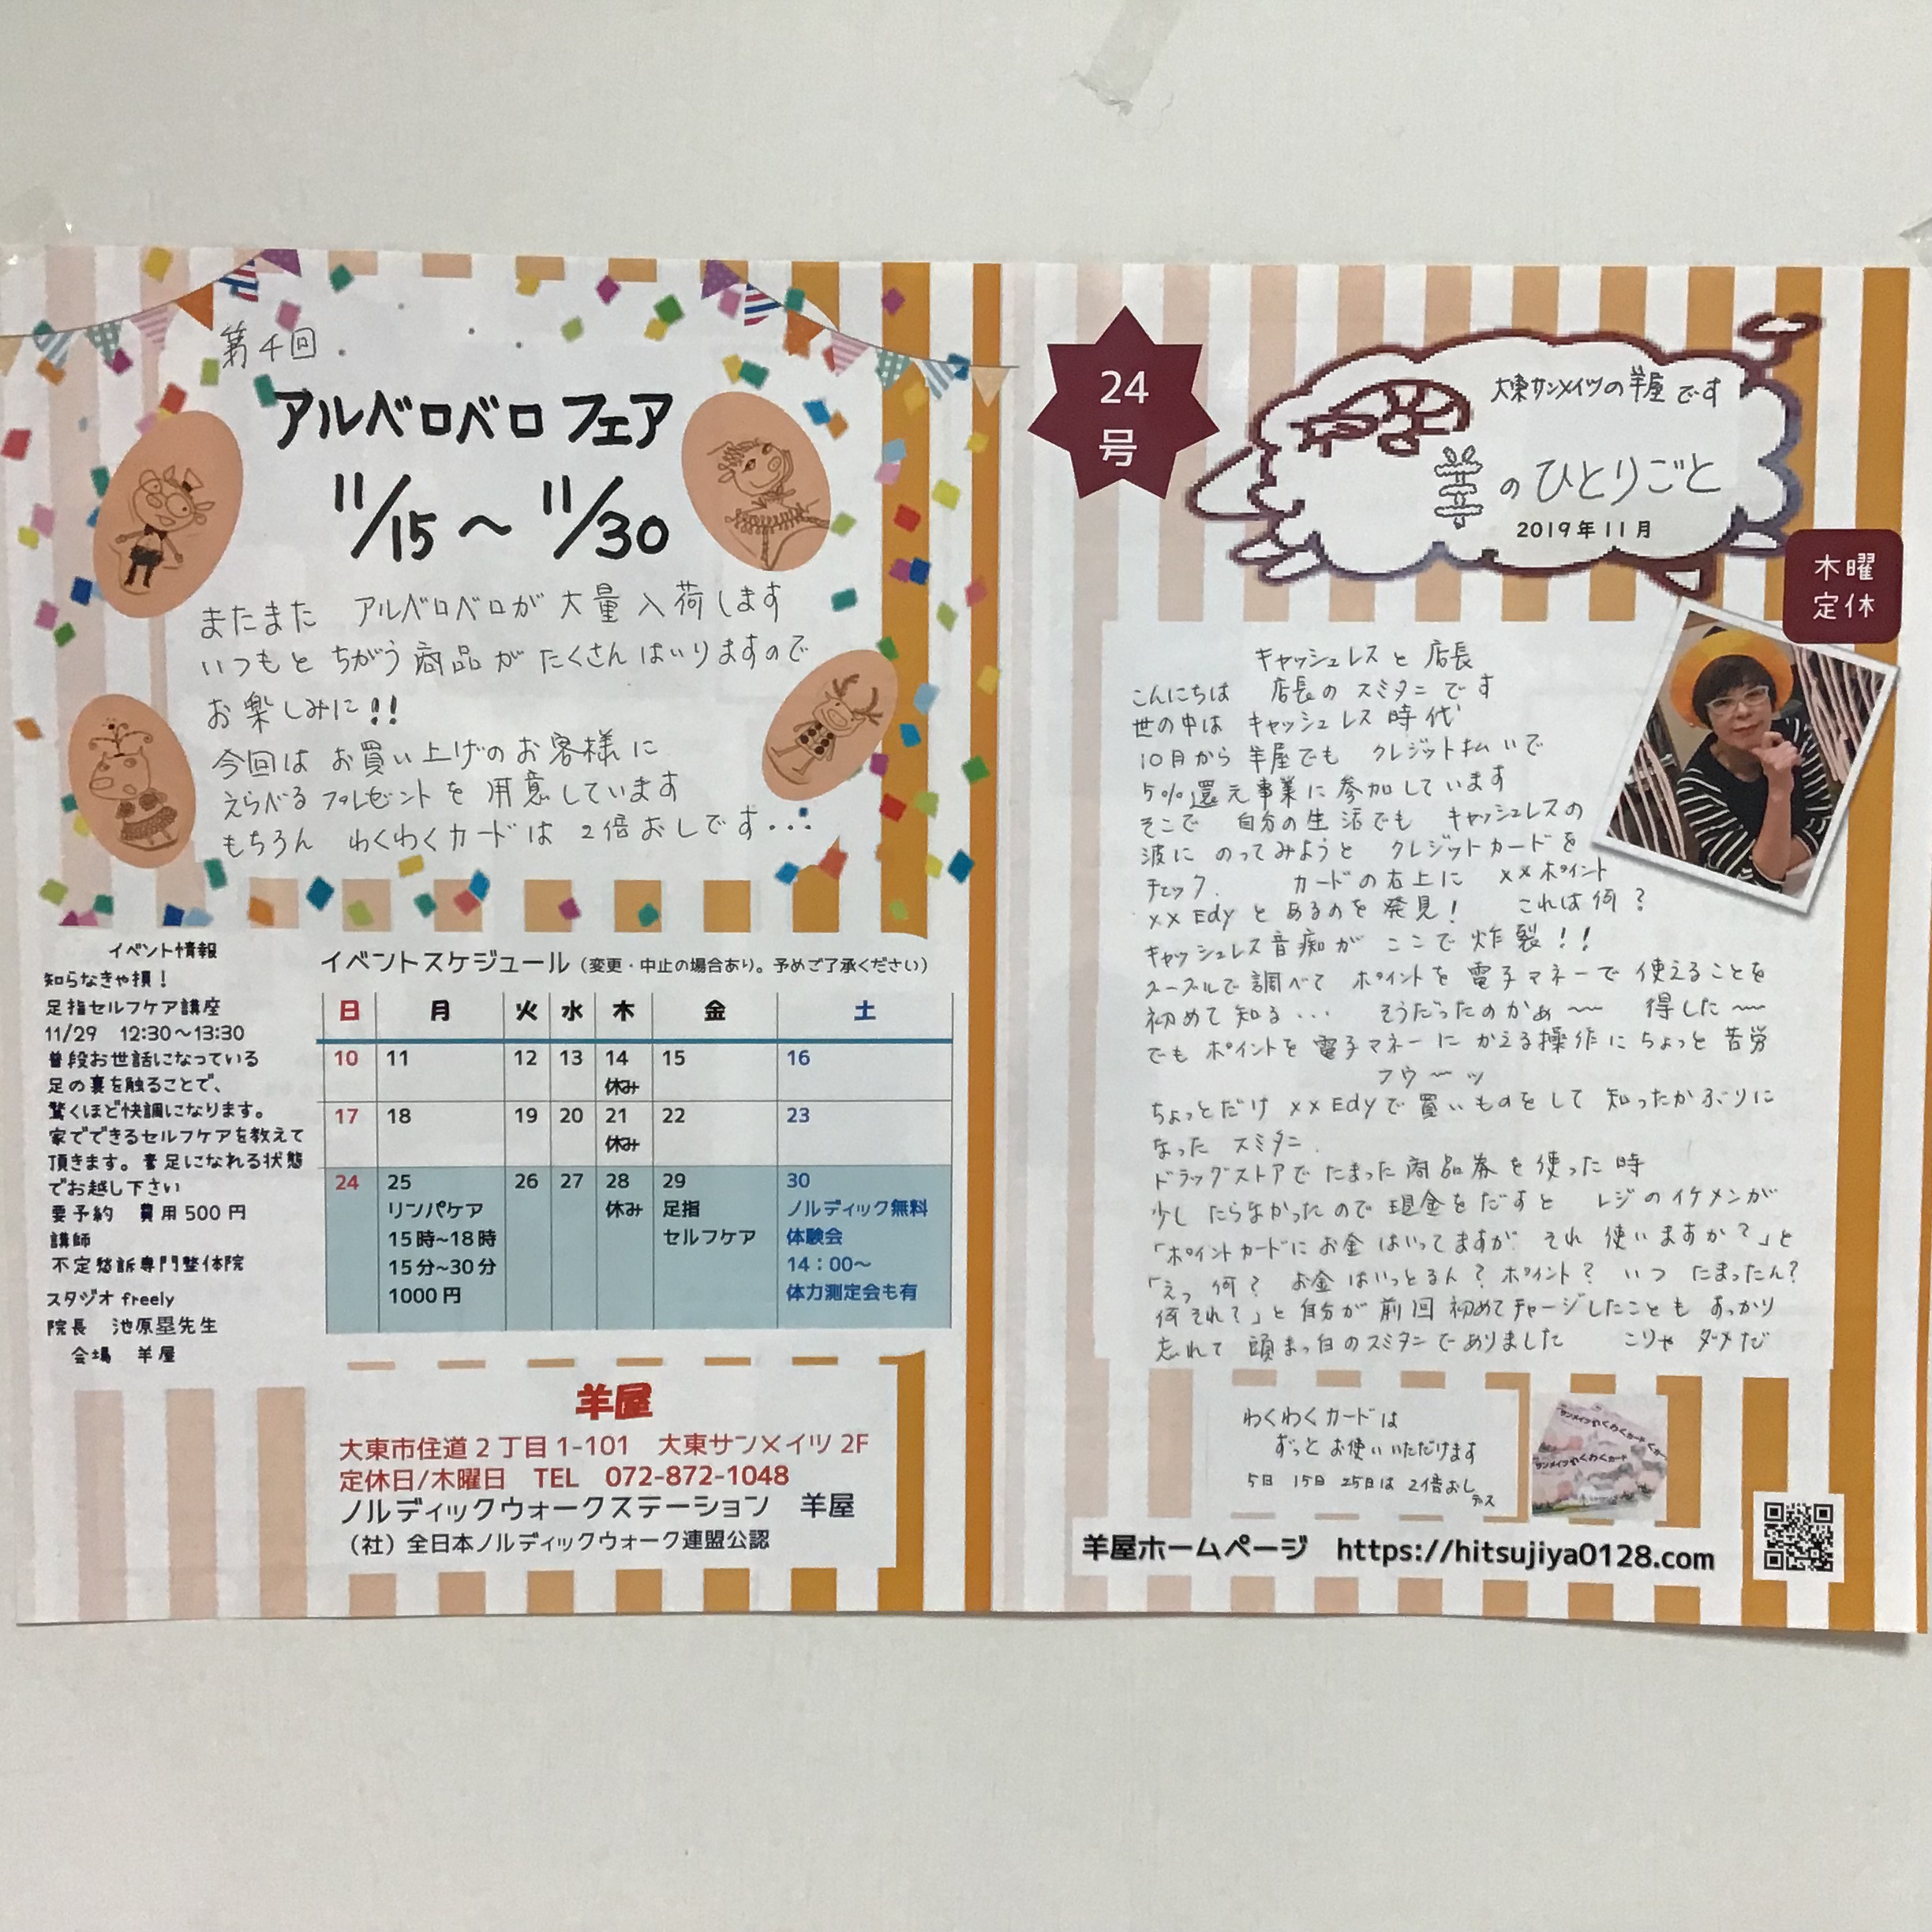 第4回
アルベロベロ フェア
11/15 〜 11/30
またまた アルベロベロが 大量 入荷します
いつもと ちがう 商品が たくさん はいりますので
お楽しみに!!
今回は お買い上げの お客様に
えらべる プレゼントを 用意しています
もちろん わくわくカードは 2倍おしです...
イベント情報
知らなきゃ損!
足指セルフケア講座
11/29 12:30〜13:30
普段お世話になっている
足の裏を触ることで、
驚くほど快調になります。
家でできるセルフケアを教えて
頂きます。素足になれる状態
でお越し下さい
要予約 費用500円
講師
不定愁訴専門整体院
スタジオ freely
院長 池原塁先生
会場 羊屋
イベントスケジュール(変更・中止の場合あり。予めご了承ください)
日 月 火 水 木 金 土
10 11 12 13 14 15 16
休み
17 18 19 20 21 22 23
休み
24 25 26 27 28 29 30
リンパケア 休み 足指 ノルディック無料
15時~18時 セルフケア 体験会
15分~30分 14:00〜
1000円 体力測定会も有
羊屋
大東市住道2丁目1-101 大東サンメイツ2F
定休日/木曜日 TEL 072-872-1048
ノルディックウォークステーション 羊屋
(社)全日本ノルディックウォーク連盟公認
24
号
大東サンメイツの羊屋です
羊のひとりごと
2019年11月
木曜
定休
キャッシュレスと 店長
こんにちは 店長の スミタニです
世の中は キャッシュレス時代
10月から 羊屋でも クレジット払いで
5%還元事業に参加しています
そこで 自分の生活でも キャッシュレスの
波に のってみようと クレジットカードを
チェック. カードの右上に ××ポイント
×× Edy と あるのを 発見! これは何?
キャッシュレス音痴が ここで 炸裂!!
グーグルで調べて ポイントを 電子マネーで 使えることを
初めて知る... そうだったのかぁ〜 得した〜
でも ポイントを 電子マネーに かえる操作に ちょっと 苦労
フウーッ
ちょっとだけ ×× Edyで買いものをして 知ったかぶりに
なった スミタニ.
ドラッグストアで たまった 商品券を使った時
少し たらなかったので 現金をだすと レジのイケメンが
「ポイントカードにお金 はいってますが それ 使いますか?」と
「えっ 何? お金 はいっとるん? ポイント? いつ たまったん?
何それ?」と自分が 前回 初めてチャージしたことも すっかり
忘れて 頭まっ白のスミタニでありました こりゃ ダメだ
わくわくカードは
ずっと お使いいただけます
5日 15日 25日は 2倍おし
デス
サンメイツわくわくカード
サンメイツわくわくカード
羊屋ホームページ https://hitsujiya0128.com